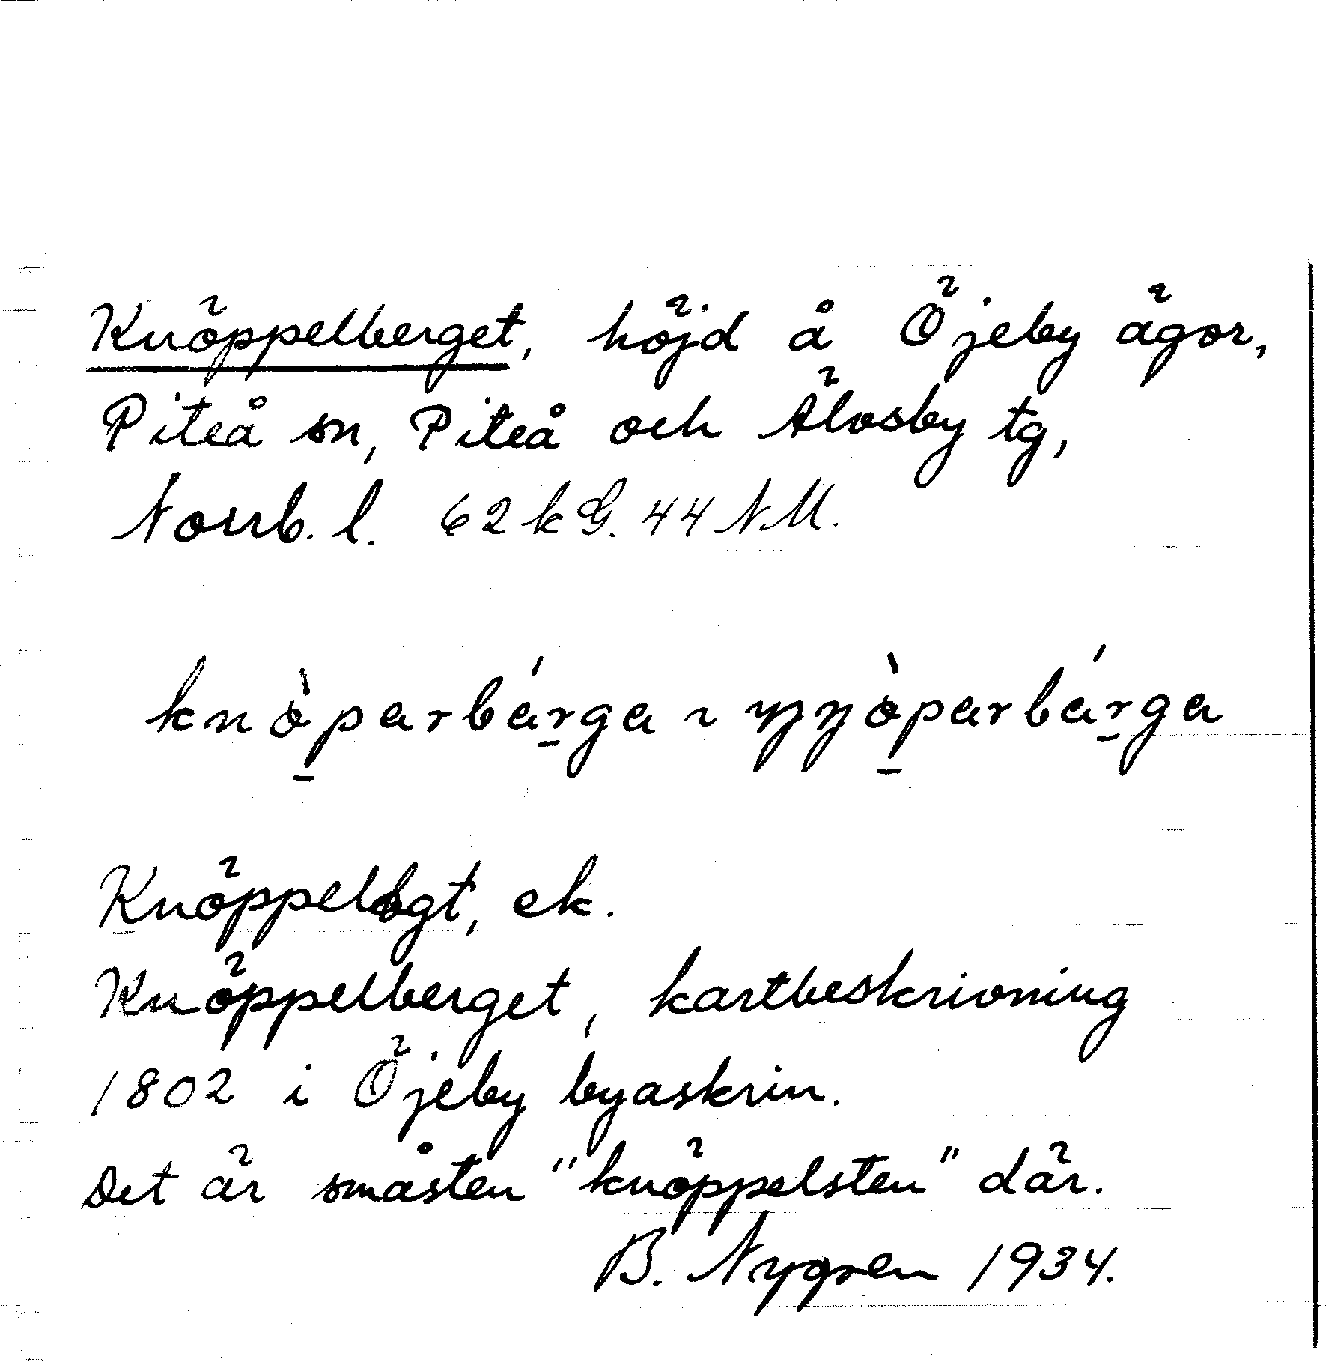 Knöppelberget, höjd å Öjeby ägor,
Piteå sn, Piteå och Älvsby tg,
Norrb. l. 62 k G. 44 N.M.
knòparbárga ~ ŋŋòparbárga
Knöppelbgt, ek.
Knöppelberget, kartbeskrivning
1802 i Öjeby byaskrin.
Det är småsten "knöppelsten" där.
B. Nygren 1934.